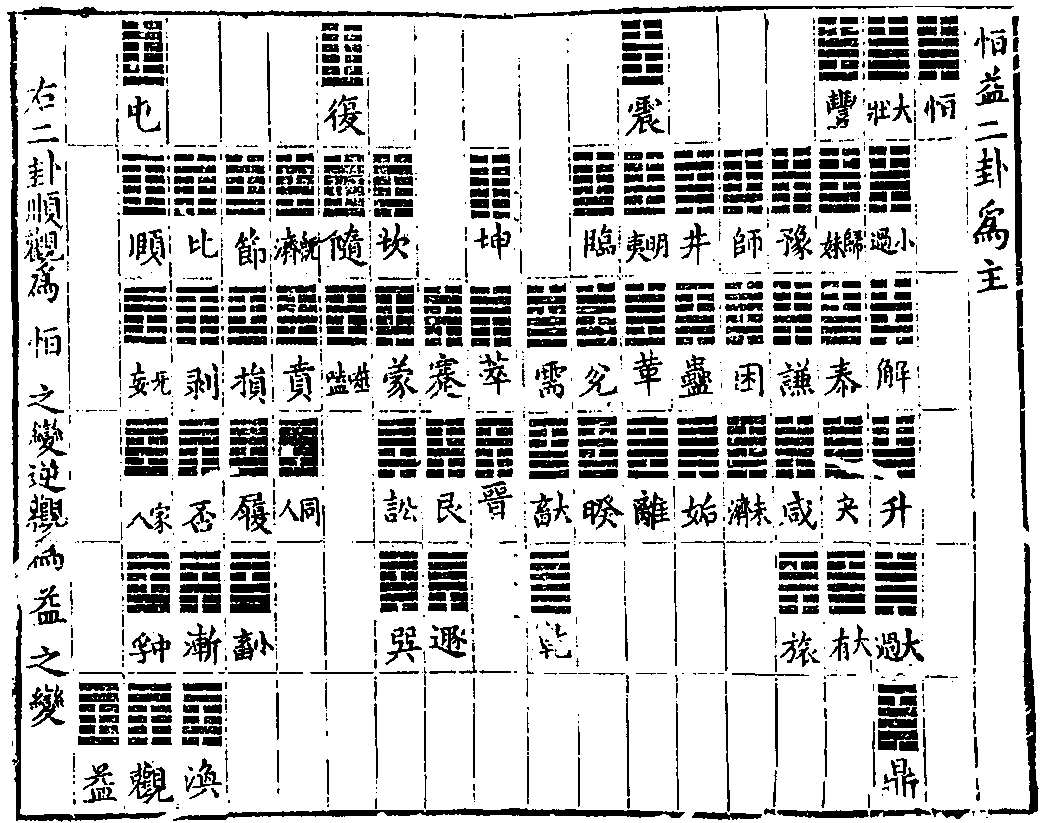 恒益二卦爲主
恒
大壯 小過 解 升 大過 鼎
豐 歸妹 泰 夬 大有
豫 謙 咸 旅
師 困 未濟
井 蠱 姤
震 明夷 革 離
臨 兌 睽
需 大畜 乾
坤 萃 晉
蹇 艮 遯
坎 蒙 訟 巽
復 隨 噬嗑
既濟 賁 同人
節 損 履 小畜
比 剥 否 漸 渙
屯 頤 无妄 家人 中孚 觀
益
右二卦順觀爲恒之變逆觀爲益之變